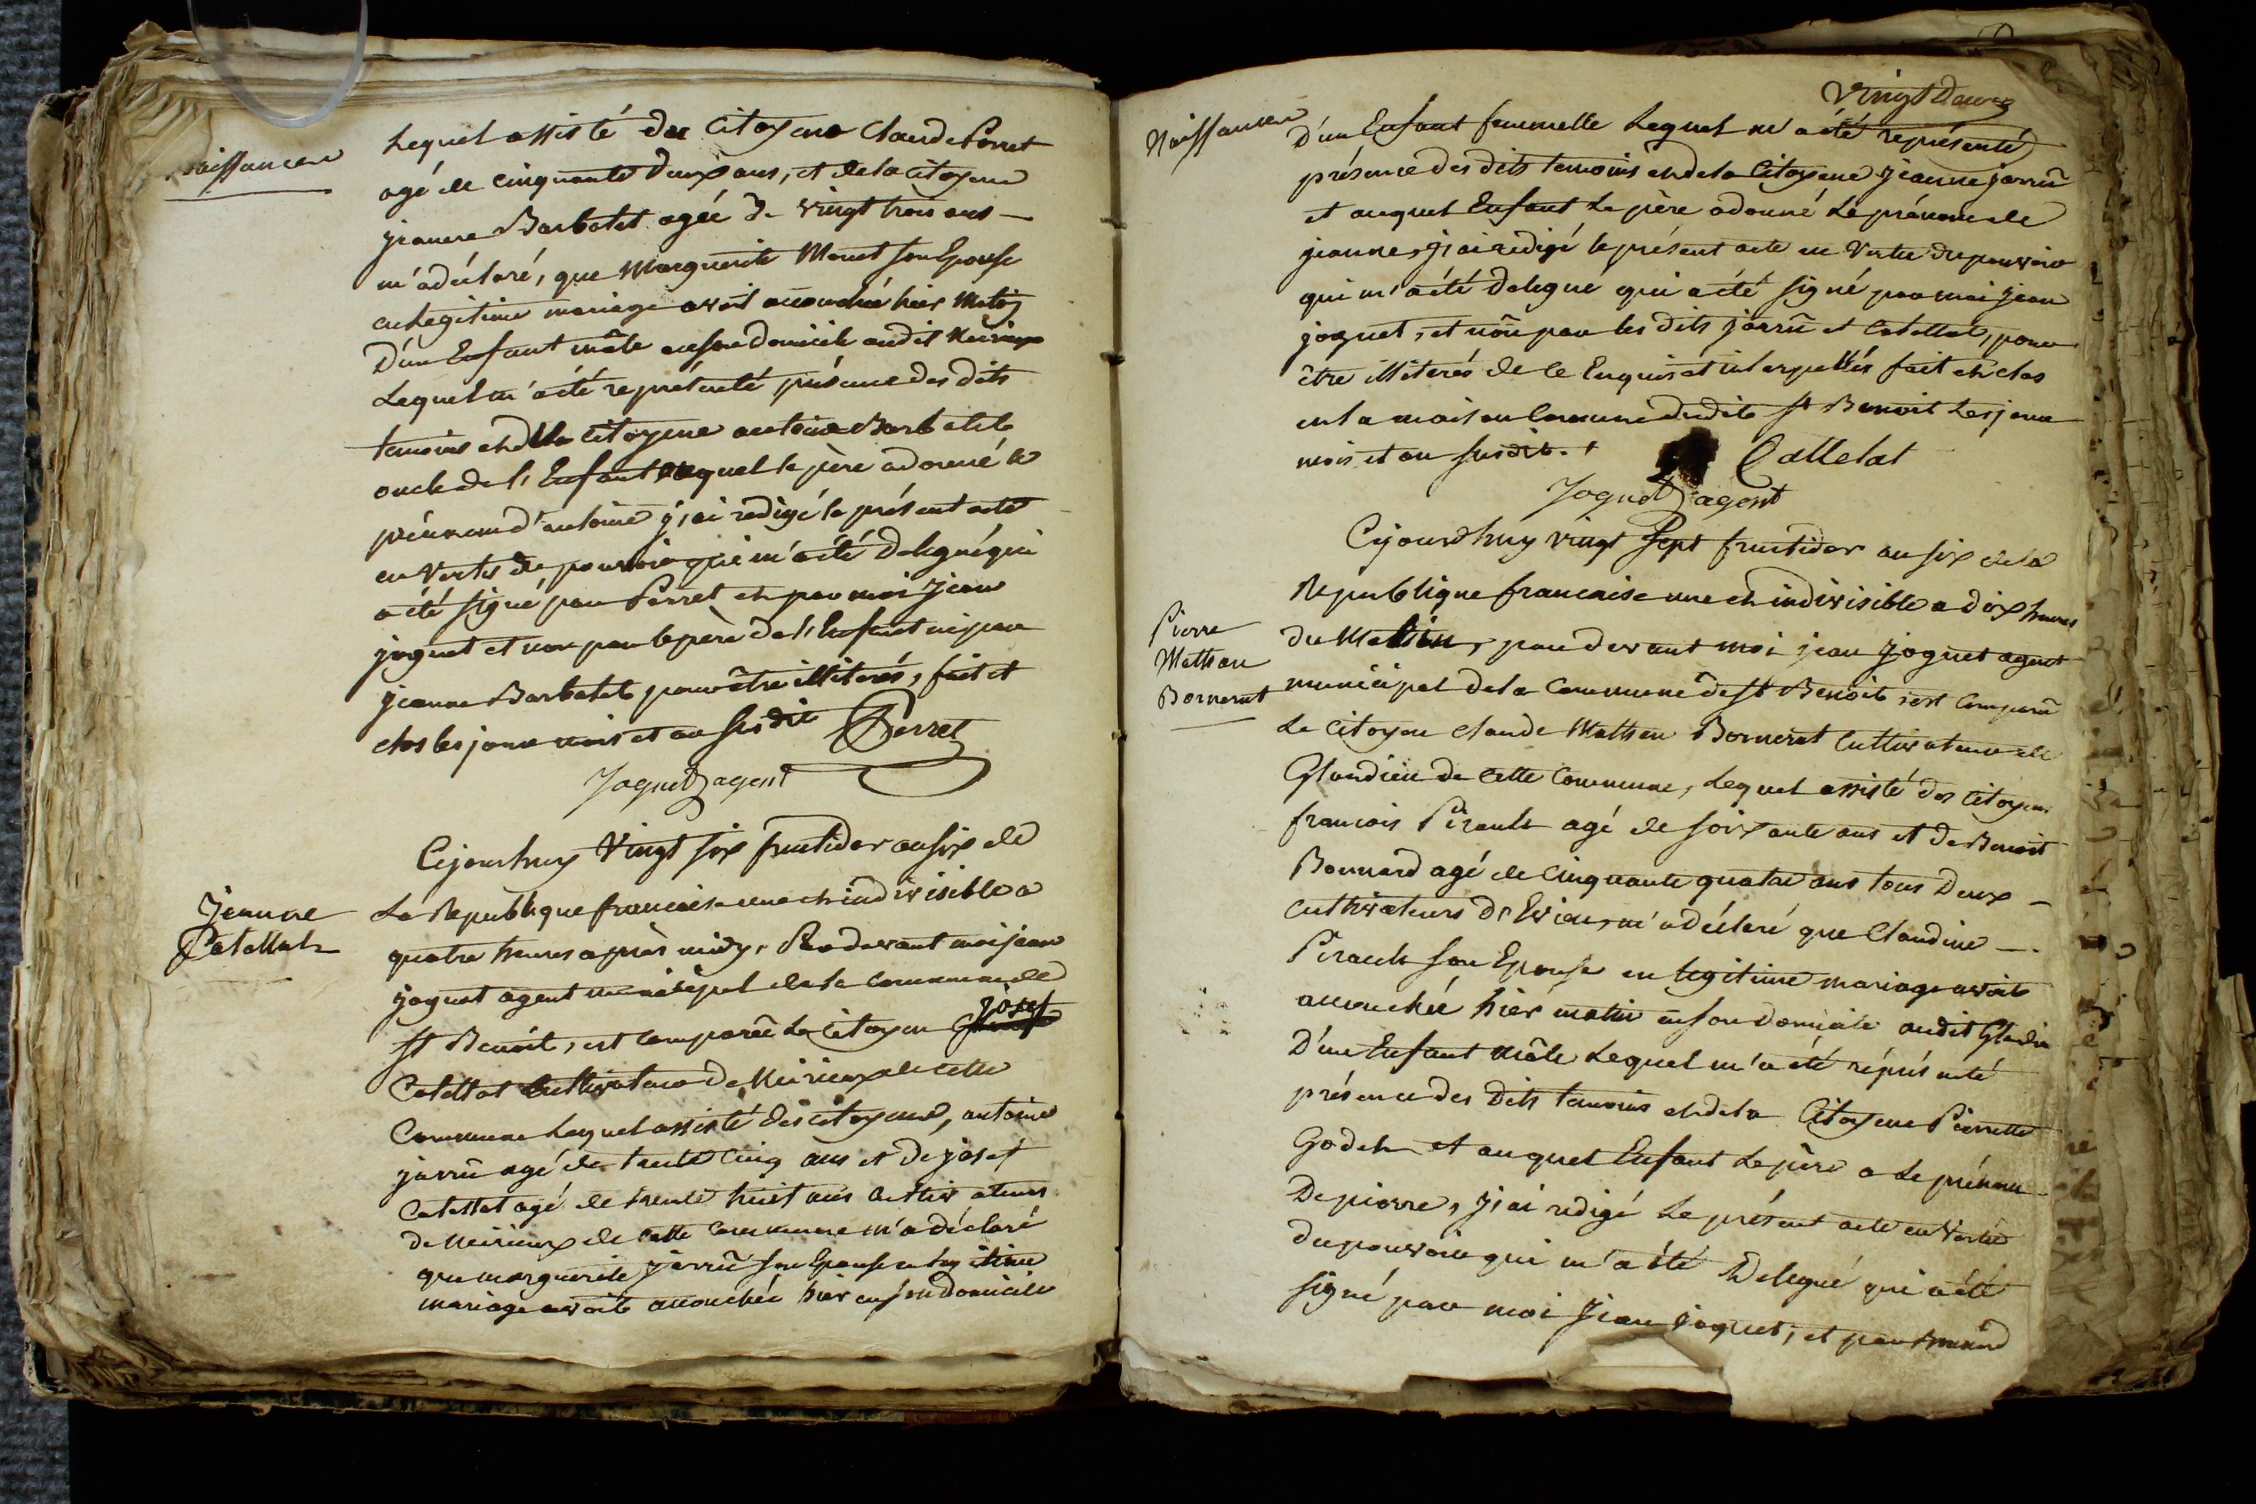 Naissances
Lequel assisté du Citoyens Claude Perret
agé de cinquante deux ans, et de la Citoyene
jeanne Barbetet agée de vingt trois ans
m'a déclaré, que Marguerite Monet son Epouse
en Legitime mariage avoit accouchée hier Matin
D'un Enfant mâle en son Domicile audit Meirieux
Lequel m'a été représenté présence des dits
temoins et de la Citoyene antoine Barbetet
oncle de l'Enfant auquel le père a donné le
prénom d'antoine j'ai redigé le présent acte
en Vertu du pouvoir qui m'a été Delegué qui
a été signé par Perret et par moi jean
joguet et non par le père de l'Enfant ni par
jeanne Barbetet pour être illiterés, fait et
clos les jour mois et an susdit Perret
Joguet agent
Cejourhuy Vingt six fructidor an six de
Jeanne
Catellat
La Republique francaise une et indivisible a
quatre heures après midy, Pardevant moi jean
joguet agent municipal de la Commune de
josef
St Benoit, est comparû Le Citoyen
Catellat Cultivateur de Meirieux de cette
Commune Lequel assisté des citoyens, antoine
jarrû agé de trente Cinq ans et de josef
Catellat agé de trente huit ans Cultivateurs
de Meirieux de cette commune m'a déclaré
que marguerite jarrû son Epouse en legitime
mariage avoit accouchée hier en son Domicile
Vingt Deux
Naissances
D'un Enfant femmelle Lequel m'a été représenté
présence des dits temoins et de la Citoyene jeanne jarrû
et auquel Enfant Le père a donné Le prénom de
jeanne, j'ai redigé le présent acte en Vertu du pouvoir
qui m'a été Delegue qui a été signé par moi jean
joguet, et non par les dits jarrû et Catellat, pour
être illiterés de ce Enquis et interpellés fait et clos
en la maison Commune dudit St Benoit Les jour
mois et an susdit.
Catlelat
Joguet agent
Cejourdhuy vingt sept fructidor an six de la
Republique francaise une et indivisible a dix heures
Pierre
Mathieu
Borneret
du Matin, par devant moi jean joguet agent
municipal de la Commune de St Benoit est Comparû
Le Citoyen Claude Mathieu Borneret Cultivateur de
Glandieu de Cette Commune, Lequel assisté des Citoyens
francois Pirault agé de soixante ans et de Benoit
Bonnard agé de Cinquante quatre ans tous Deux
Cultivateurs D'Evieu, m'a déclaré que Claudine
Pirault son Epouse en legitime mariage avoit
accouchée hier matin en son Domicile audit Glandieu
D'un Enfant mâle Lequel m'a été réprésenté
présence des Dits temoins et de la Citoyene Pierrette
Godet et auquel Enfant Le père a Le prénom
De pierre, j'ai redigé Le présent acte en Vertu
du pouvoir qui m'a été Delegué qui a été
signé par moi jean joguet, et par Bonnard